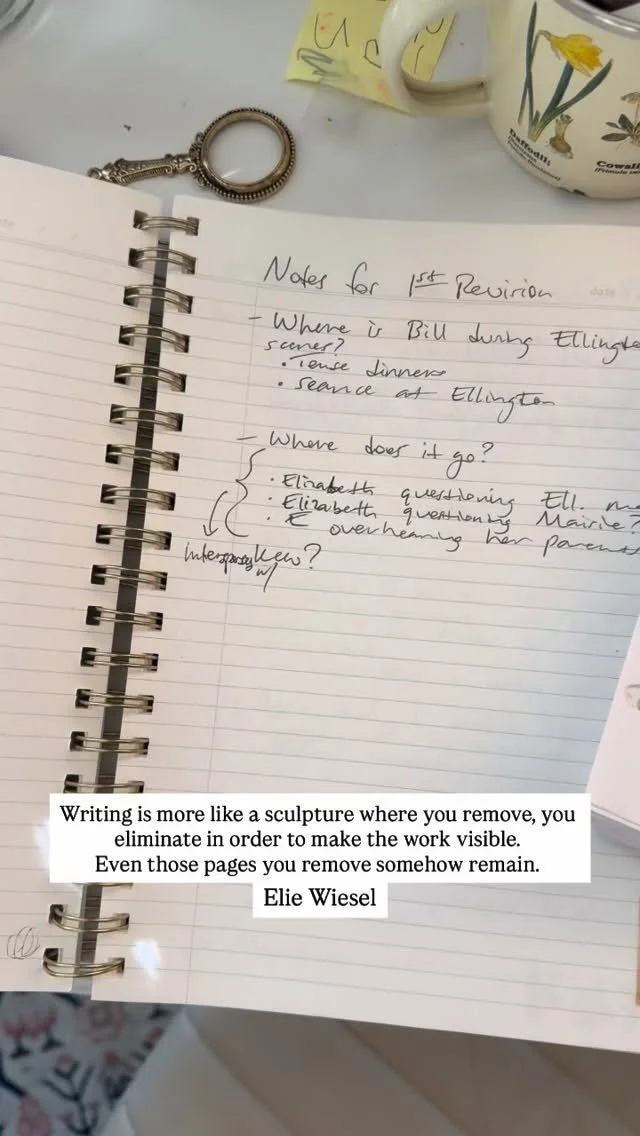 Daffodil
Cowsli
Notes for 1st Revision
date
- Where is Bill during Ellingto
scenes?
• Tense dinners
• seance at Ellington
- Where does it go?
• Elizabeth questioning Ell. m
• Elizabeth questioning Mairie?
• E overhearing her parents
Intersperse w/ Kew?
Writing is more like a sculpture where you remove, you
eliminate in order to make the work visible.
Even those pages you remove somehow remain.
Elie Wiesel